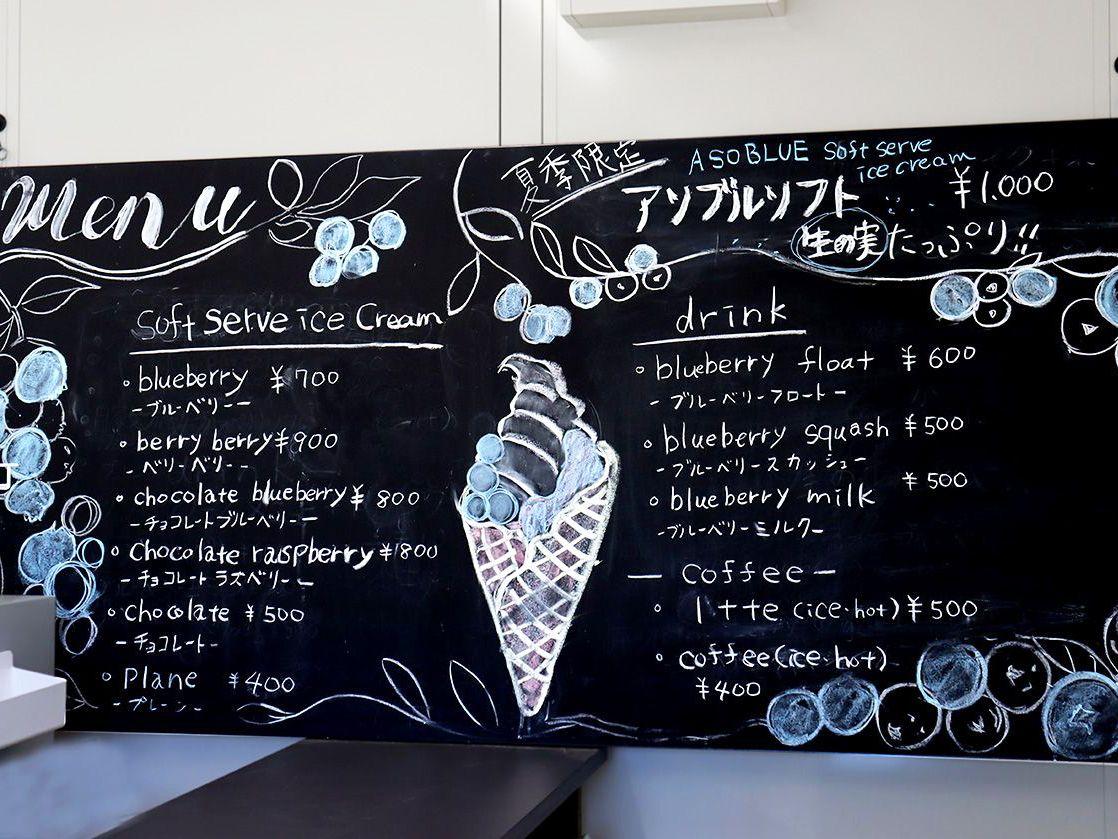 menu
夏季限定
ASOBLUE Soft serve
ice cream
アソブルソフト ¥1,000
生の実たっぷり!!
Soft serve ice Cream
blueberry ¥700
ーブルーベリーー
berry berry ¥900
ーベリーベリーー
chocolate blueberry ¥800
ーチョコレートブルーベリーー
Chocolate raspberry ¥800
ーチョコレートラズベリーー
chocolate ¥500
ーチョコレートー
Plane ¥400
ープレーンー
drink
blueberry float ¥600
ーブルーベリーフロートー
blueberry squash ¥500
ーブルーベリースカッシューー
blueberry milk ¥500
ーブルーベリーミルクー
ー coffee ー
(ice・hot) ¥500
coffee (ice・hot)
¥400